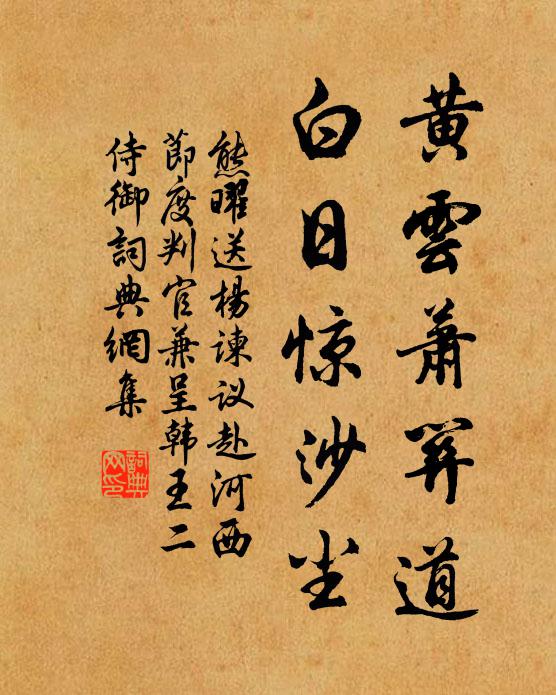 黄雲蕭關道
白日惊沙尘
熊曜送楊諫议赴河西
節度判官兼呈韩王二
侍御詞典網集
詞典
网印